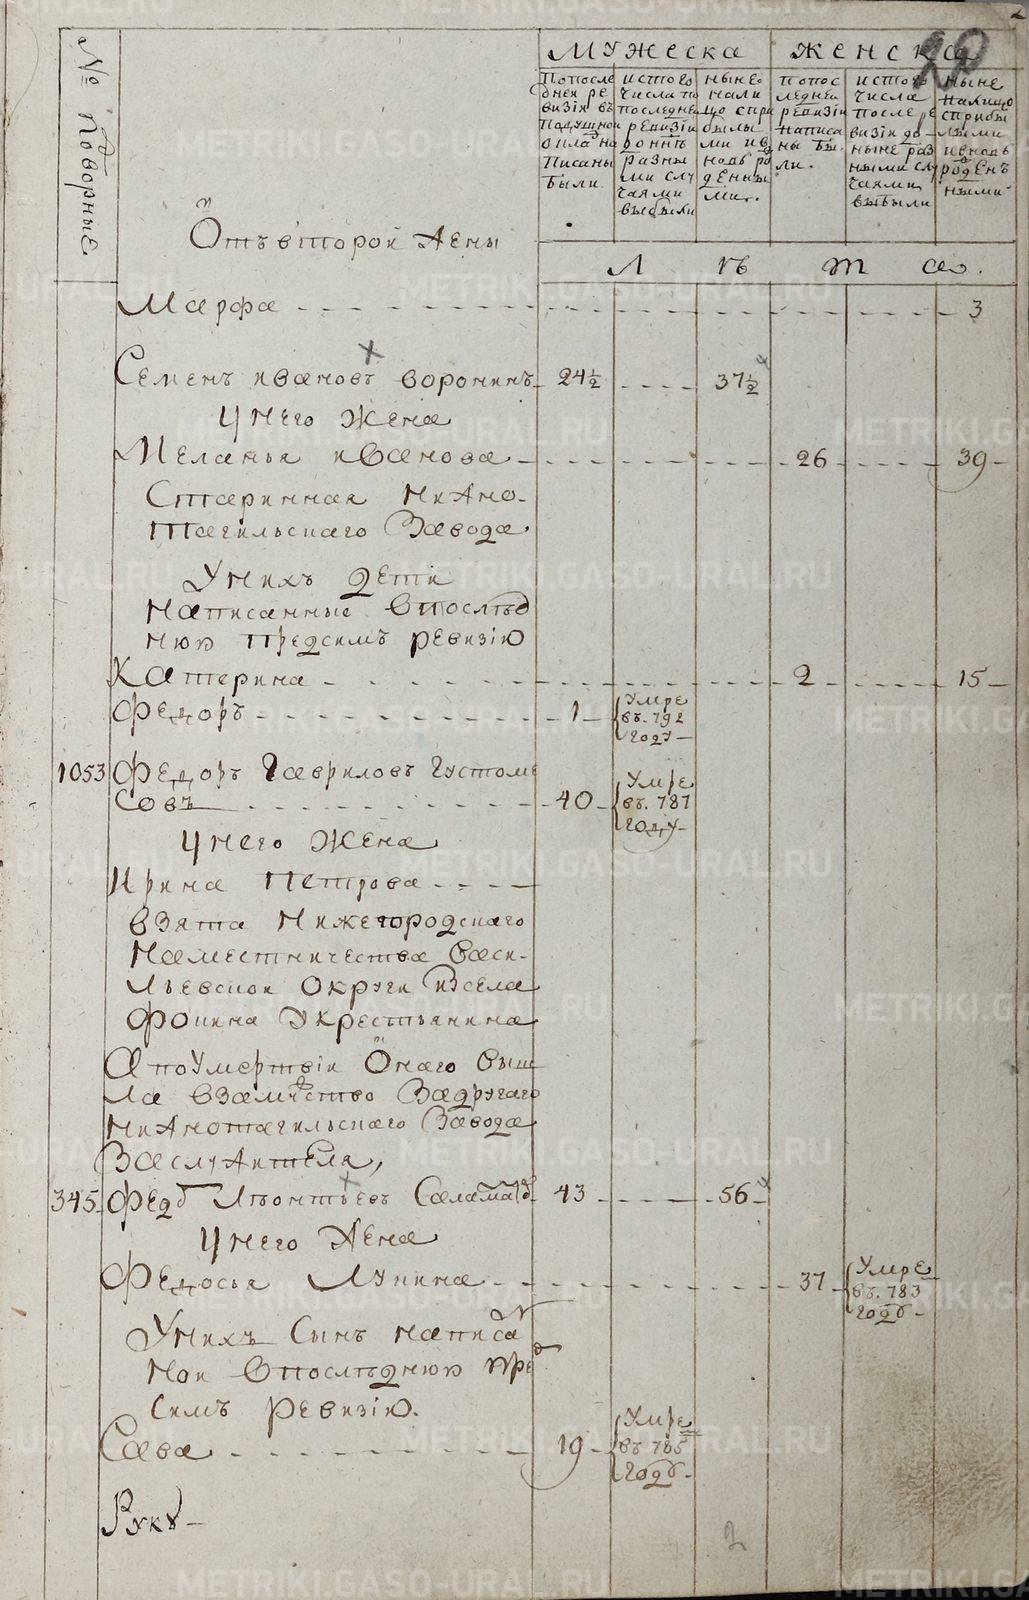 20
№ подворные
Мужеска
женска
По последней ревизіи въ подушной оплад написаны были
ис того числа по последней ревизіи до нынѣ разными случаями выбыли
ныне налицо с прибылыми и вновь рожденными
по последней ревизіи написаны были
ис того числа после ревизіи до ныне разными случаями выбыли
ныне налицо с прибылыми и вновь рожденными
Отъ второй жены
Л ѣ т а.
Марфа 3
Семенъ ивановъ воронинъ 24½ 37½
у него жена
Меланья иванова 26 39
Старинная нижно-
тагильскаго завода
У нихъ дети
написанные в послѣд
нюю предсимъ ревизію
Катерина 2 15
Федоръ 1 Умре
въ 792
году
1053 Федоръ Гавриловъ Густоме
совъ 40 Умре
въ 787
году
у него жена
Ирина Петрова
взята нижегородскаго
наместничества васи-
льевской округи изсела
Фокина у крестьянина
а по умертвіи онаго выш
ла в замѣство за другаго
нижнотагильскаго завода
за служителя,
345 Фед Лѣонтьевъ Салама 43 56
у него жена
Федосья Лукина 37 Умре
въ 783
году
У нихъ сынъ написа
ной в послѣднюю пред
симъ ревизію.
Сава 19 Умре
въ 785
году
Рукъ
2
METRIKI.GASO-URAL.RU